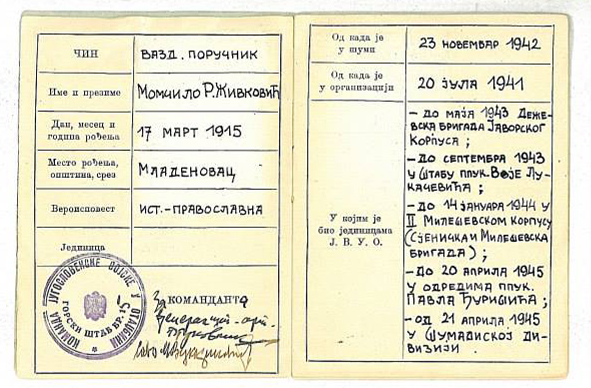 ЧИН
ВАЗД. ПОРУЧНИК
Име и презиме
МОМЧИЛО Р. ЖИВКОВИЋ
Дан, месец и
година рођења
17 МАРТ 1915
Место рођења,
општина, срез
МЛАДЕНОВАЦ
Вероисповест
ИСТ.-ПРАВОСЛАВНА
Јединица
КОМАНДА ЈУГОСЛОВЕНСКЕ ВОЈСКЕ У ОТАЏБИНИ
ГОРСКИ ШТАБ БР. 15
За КОМАНДАНТА
Од када је
у шуми
23 НОВЕМБАР 1942
Од када је
у организацији
20 ЈУЛА 1941
У којим је
био јединицама
Ј. В. У. О.
- ДО МАЈА 1943 ДЕЖЕ-
ВСКА БРИГАДА ЈАВОРСКОГ
КОРПУСА;
- ДО СЕПТЕМБРА 1943
У ШТАБУ ППУК. ВОЈЕ ЛУ-
КАЧЕВИЋА;
- ДО 14 ЈАНУАРА 1944 У
II МИЛЕШЕВСКОМ КОРПУСУ
(СЈЕНИЧКА И МИЛЕШЕВСКА
БРИГАДА);
- ДО 20 АПРИЛА 1945
У ОДРЕДИМА ППУК.
ПАВЛА ЂУРИШИЋА;
- ОД 21 АПРИЛА 1945
У ШУМАДИСКОЈ ДИ-
ВИЗИЈИ.